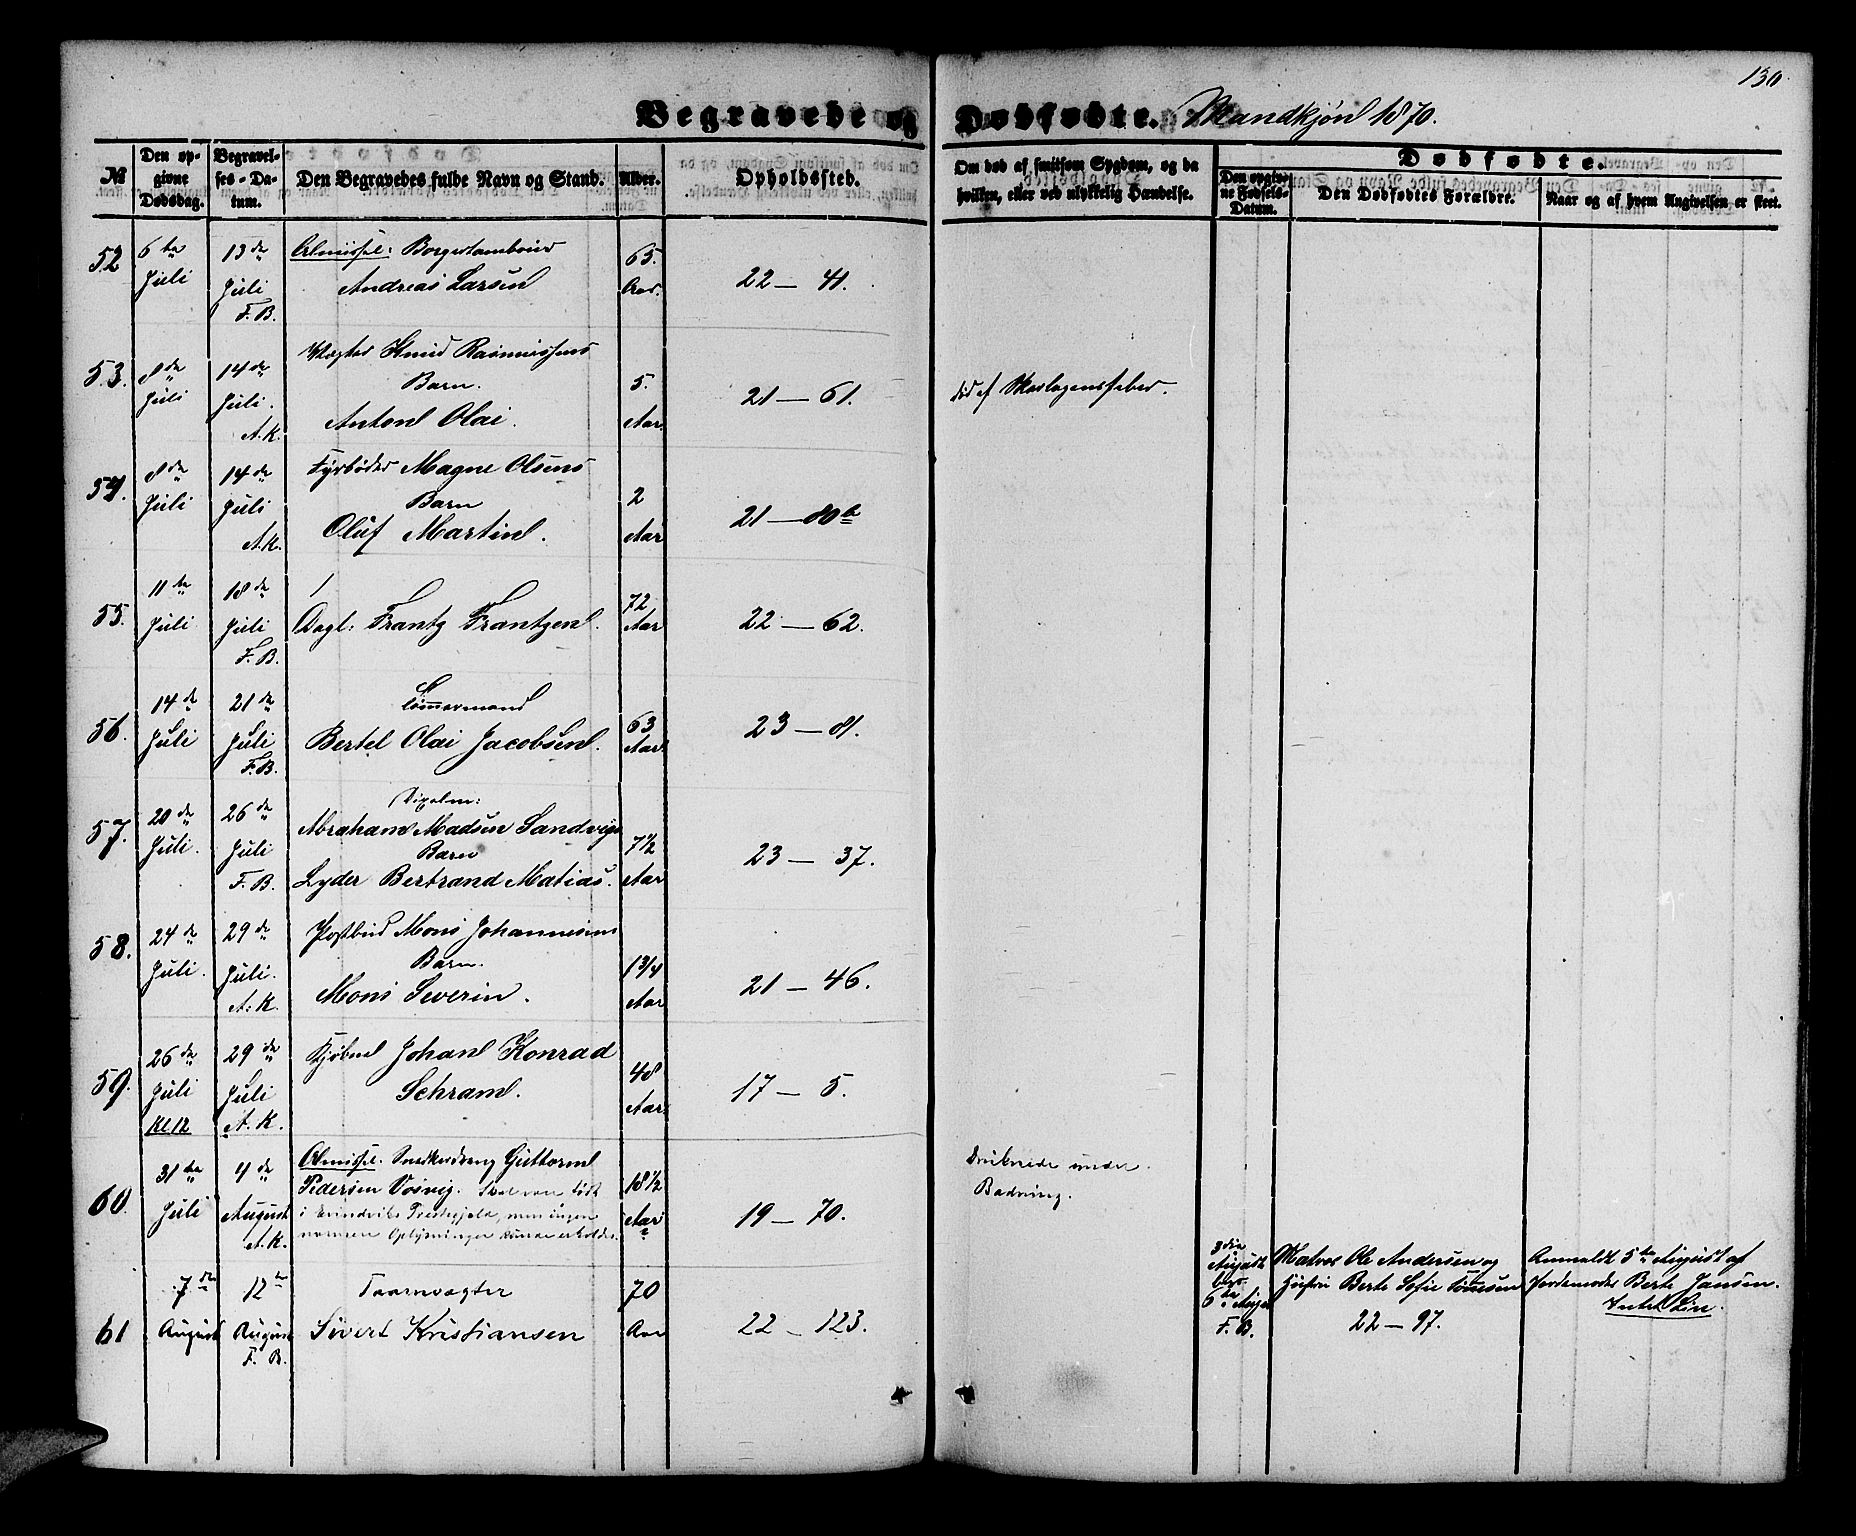 130.
Begravede og Dødfødte. Mandkjøn 1870.
№
Den opgivne Dødsdag.
Begravelses-Datum.
Den Begravedes fulde Navn og Stand.
Alder.
Opholdssted.
Om død af smitsom Sygdom, og da hvilken, eller ved ulykkelig Hændelse.
Dødfødte.
Den opgivne Fødsels-Datum.
Den Dødfødtes Forældre.
Naar og af hvem Angivelsen er skeet.
52 6te Juli 13de Juli F.B.
Almisse: Borgertambour
Andreas Larsen
65. Aar.
22 — 41.
53. 8de Juli 14de Juli. A.K.
Vægter Knud Rasmussens
Barn.
Anton Olai.
5. Aar
21 — 61.
død af Skarlagensfeber.
54. 8de Juli 14de Juli A.K.
Fyrbøder Magne Olsens
Barn
Oluf Martin.
2 Aar
21 — 80a
55. 11te Juli 18de Juli F.B.
Dagl: Frantz Frantzen.
72 Aar
22 — 62.
56. 14de Juli 21de Juli F.B.
Tømmermand
Bertel Olai Jacobsen.
63 Aar
23 — 81.
57. 20de Juli. 26de Juli F.B.
Abraham Madsen Sandvigs
Barn
Lyder Bertrand Matias.
7½ Aar
23 — 37.
58. 24de Juli. 29de Juli. A.K.
Postbud Mons Johannesens
Barn.
Mons Severin.
1¾ Aar
21 — 46.
59. 26de Juli Kl.12 29de Juli A.K.
Kjøbm Johan Konrad
Schram.
48 Aar
17 — 5.
60. 31te Juli 4de August A.K.
Almisse. Snedkerdreng Guttorm
Pedersen Vosvig. Skal være født
i Evindvigs Præstegjeld, men ingen
nærmere Oplysninger kunne erholdes.
18½ Aar
19 — 70.
Druknede under
Badning.
3die August begr 6te Aug. F.B.
Matros Ole Andersen og
Hustru Berte Sofie Tønnesen
22 — 97.
Anmeldt 5te August af
Jordemoder Berte Jansen.
61 7de August 12te August F. B.
Taarnvægter
Sivert Kristiansen
70 Aar
22 — 123.